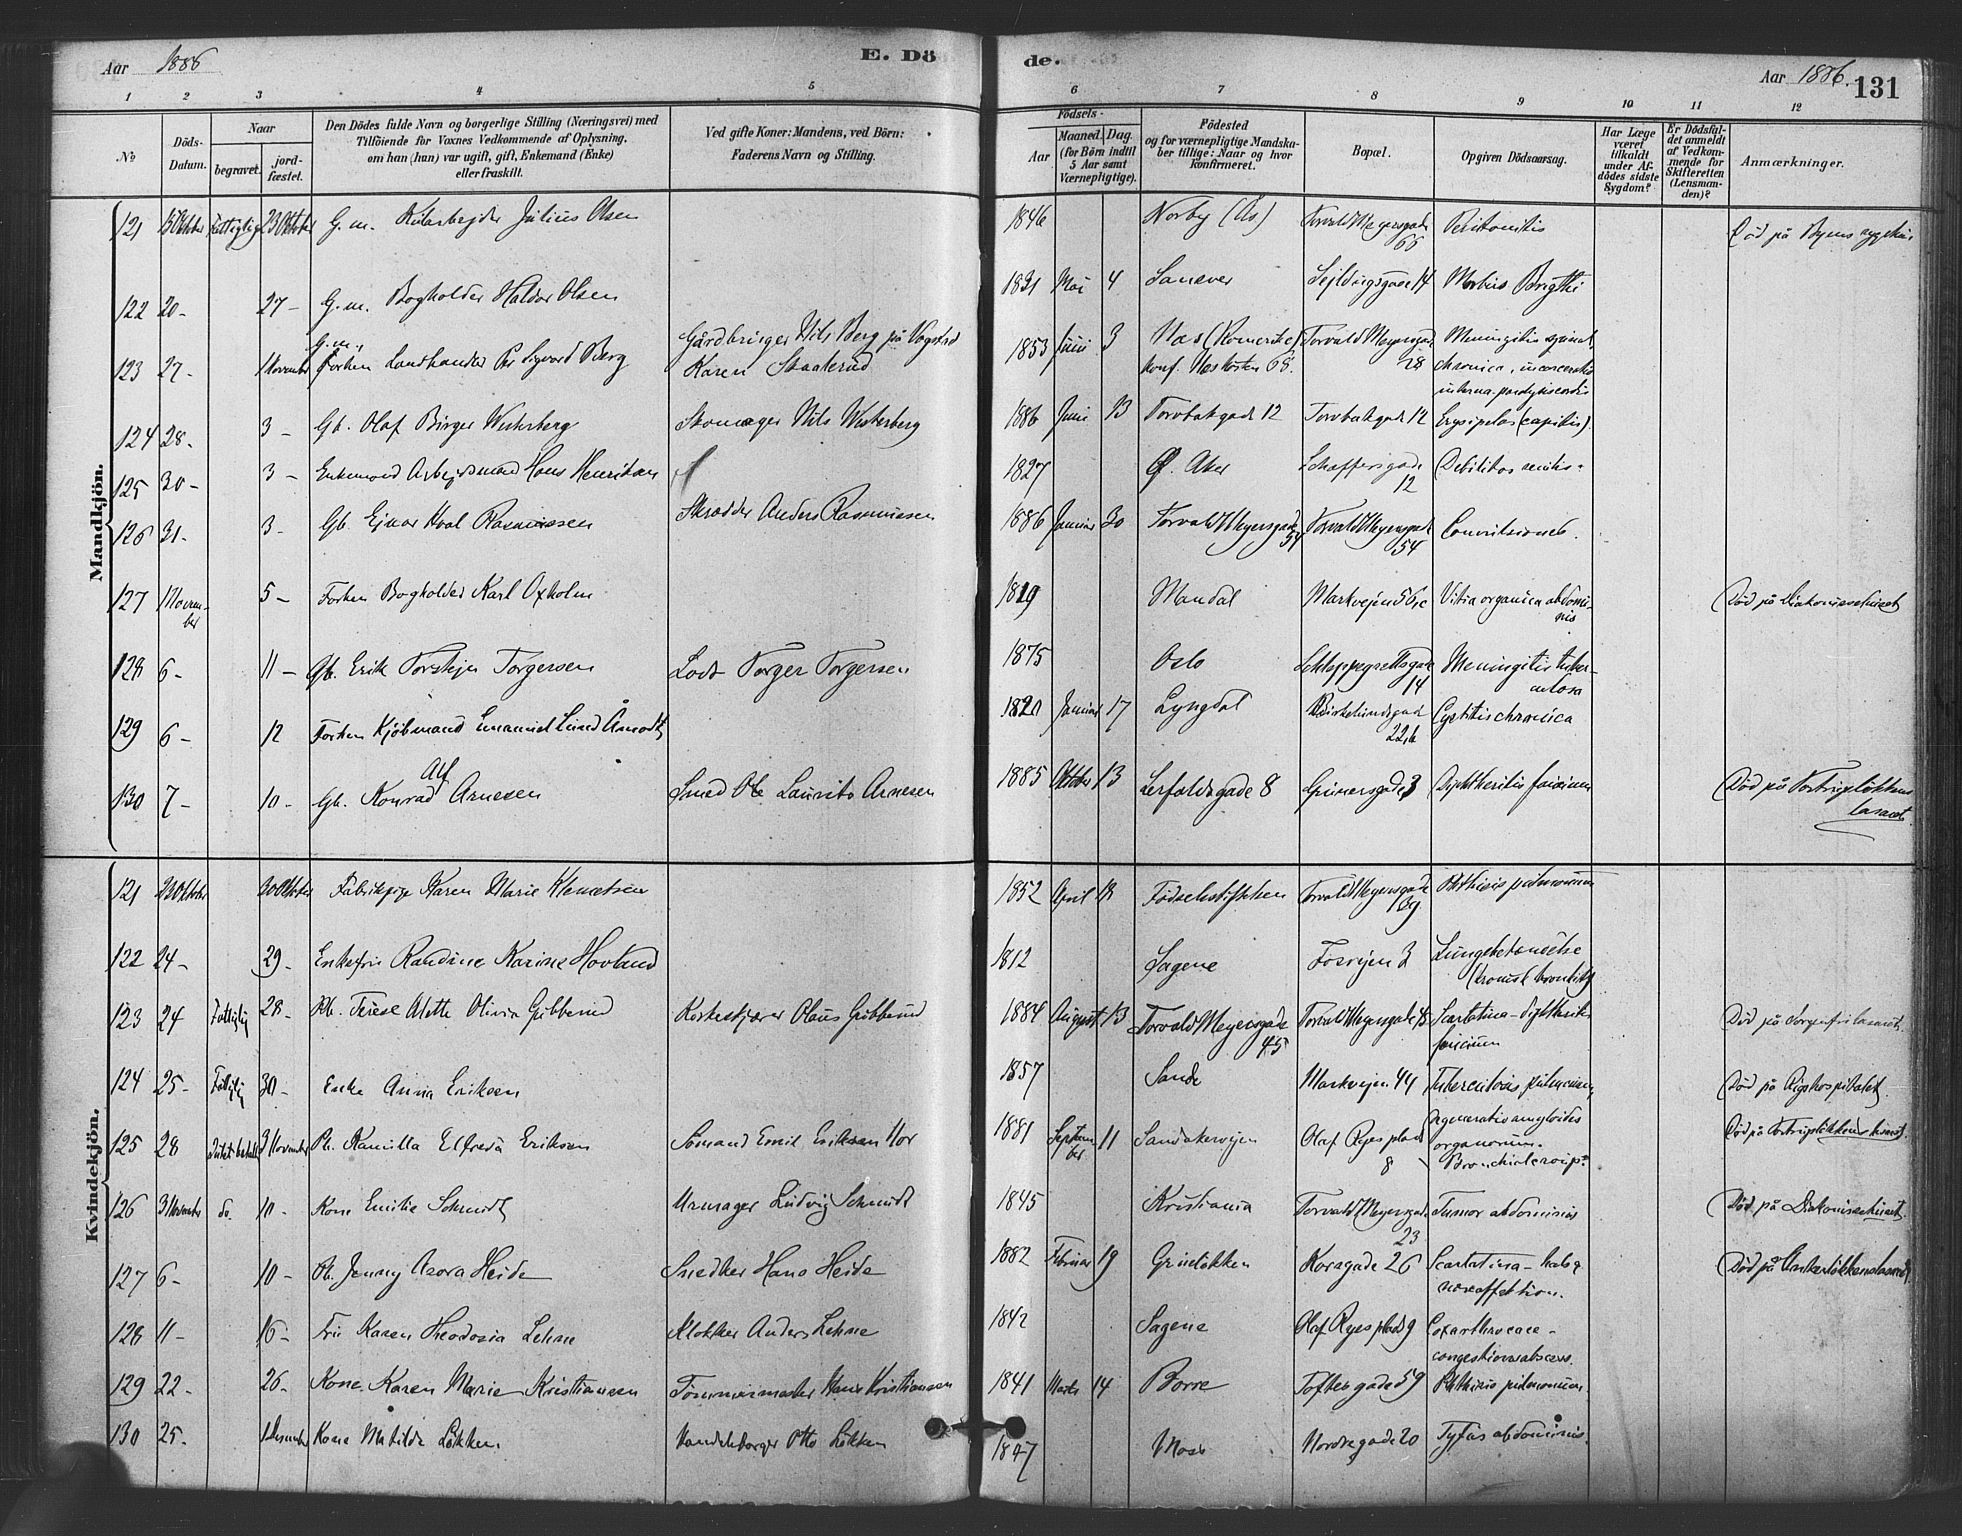 Aar 1886
E. Dö
de.
Aar 1886.
131
1 2 3 4 5 6 7 8 9 10 11 12
No
Döds-
Datum.
Naar
begravet.
jord-
fæstet.
Den Dödes fulde Navn og borgerlige Stilling (Næringsvei) med
Tilföiende for Voxnes Vedkommende af Oplysning.
om han (hun) var ugift, gift, Enkemand (Enke)
eller fraskilt.
Ved gifte Koner: Mandens, ved Börn:
Faderens Navn og Stilling.
Födsels-
Aar
Maaned.
Dag.
(for Börn indtil
5 Aar samt
Værnepligtige).
Födested
og for værnepligtige Mandska-
ber tillige: Naar og hvor
konfirmeret.
Bopæl.
Opgiven Dödsaarsag.
Har Læge
været
tilkaldt
under Af-
dödes sidste
Sygdom?
Er Dödsfal-
det anmeldt
af Vedkom-
mende for
Skifteretten
(Lensman-
den)?
Anmærkninger.
Mandkjön.
121 23 Oktober G.m. Julius Olsen 1846 Norby (Ås) Torvald Meyersgade 66 Peritonitis Död på Byens sygehus
122 20- 27- G.m. Bogholder Haldor Olsen 1831 Mai 4 14 Morbus Brigthi
G.m.
123 27- 1 November Forhen Landhandler Sigvard Berg Gårdbruger Nils Berg på 1853 Juni 3 Nas (Romerike) Torvald Meyersgade 28 Meningitis spinal.
Karen konf. 68. chronica, incarceratio
interna.
124 28- 3- Gb. Olaf Birger Westerberg Skomager Nils Westerberg 1886 Juni 13 Torvbakgade 12 Torvbakgade 12 Erysipelas (capitis).
125 30- 3- Enkemand Arbejdsmand Hans Henriksen 1827 Ø. Aker Schaffersgade 12 Debilitas senilis-
126 31- 3- Gb. Ejnar Hval Rasmussen Skrædder Anders Rasmussen 1886 Januar 30 Torvald Meyersgade 54 Torvald Meyersgade 54 Convulsiones.
127 November 5- Forhen Bogholder Karl Oxholm 1819 Mandal Markvejen 56,c Vitia organica abdomi-
nis Död på Diakonissehuset
128 6- 11- Gb. Erik Torstejn Torgersen Lods Torger Torgersen 1875 Oslo Schleppegrellsgade 14 Meningitis tuber-
culosa
129 6- 12 Forhen Kjöbmand Emanuel Lund Åmodt 1820 Januar 17 Lyngdal Birkelundsgad 22,b Cystitis chronica
Alf
130 7- 10- Gb. Konrad Arnesen Smed Ole Laurits Arnesen 1885 Oktober 13 Lerfaldsgade 8 Grünersgade 3 Diphtheritis faucium Död på
lasaret.
Kvindekjön.
121 23 Oktober 30 Oktober Fabrikpige Karen Marie Klemetsen 1852 April 18 Födselsstiftelsen Torvald Meyersgade Phthisis pulmonum
122 24- 29- Enkefru Randine Karine Hovland 1812 Sagene Fosvejen 3 Lungebetændelse
(kronisk bronkitis)
123 24 Fattiglig 28- Pb. Terese Alette Olivia Gubberud Korkeskjærer Olaus Gubberud 1884 August 13 Torvald Meyersgade 45 Torvald Meyersgade 45 Scarlatina-diphtheritis
faucium Död på Sorgenfri lasaret.
124 25- Fattiglig 30- Enke Anna Eriksen 1857 Sande Markvejen 44 Tuberculosis pulmonum, Död på Rigshospitalet.
125 28 3 November Pb. Kamilla Elfreda Eriksen Sömand Emil Eriksen 1881 September 11 Sandakervejen Olaf Ryes plads 8 Degeneratio amyloides
organorum.
Bronchialcroup?
126 3 November do. 10- Kone Emilie Schmidt Urmager Ludvig Schmidt 1845 Kristiania Torvald Meyersgade 23 Tumor abdominis Död på Diakonissehuset.
127 6- 10- Pb. Jenny Asora Heide Snedker Hans Heide 1882 Februar 19 Grüneløkken Korsgade 26 Scarlatina-
Död på Ankerløkkens lasaret
128 11- 16- Fru Karen Theodosia Lehne Klokker Anders Lehne 1842 Sagene Olaf Ryes plads 9 Coxarthrocace-
congestionsabscess.
129 22- 26- Kone Karen Marie Kristiansen Tömmermester Hans Kristiansen 1841 Marts 14 Borre Toftesgade 59 Phthisis pulmonum
130 25- 1 December Kone Matilde Lökken Handelsborger Otto Lökken 1847 Moss Nordregade 20 Tyfus abdominis.